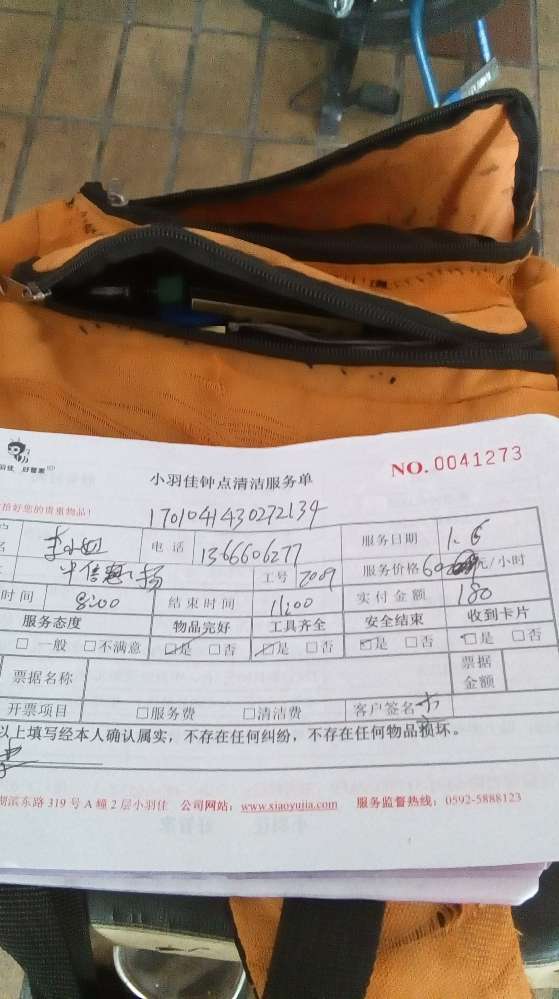 好管家
小羽佳钟点清洁服务单
NO. 0041273
您的贵重物品!
1701041430272134
李小姐 电话 1366606277 服务日期 1.6
中信 扬 工号 2009 服务价格 60 元/小时
时间 8:00 结束时间 11:00 实付金额 180
服务态度 物品完好 工具齐全 安全结束 收到卡片
□ 一般 □不满意 ☑是 □否 ☑是 □否 ☑是 □否 ☑是 □否
票据名称 票据金额
开票项目 □服务费 □清洁费 客户签名
以上填写经本人确认属实,不存在任何纠纷,不存在任何物品损坏。
湖滨东路 319 号 A 幢 2 层小羽佳 公司网站:www.xiaoyujia.com 服务监督热线:0592-5888123